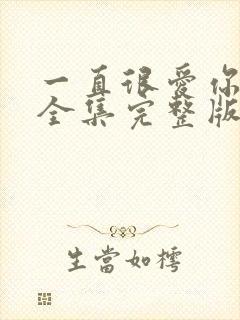 一直很爱你
全集完整版
生當如樗